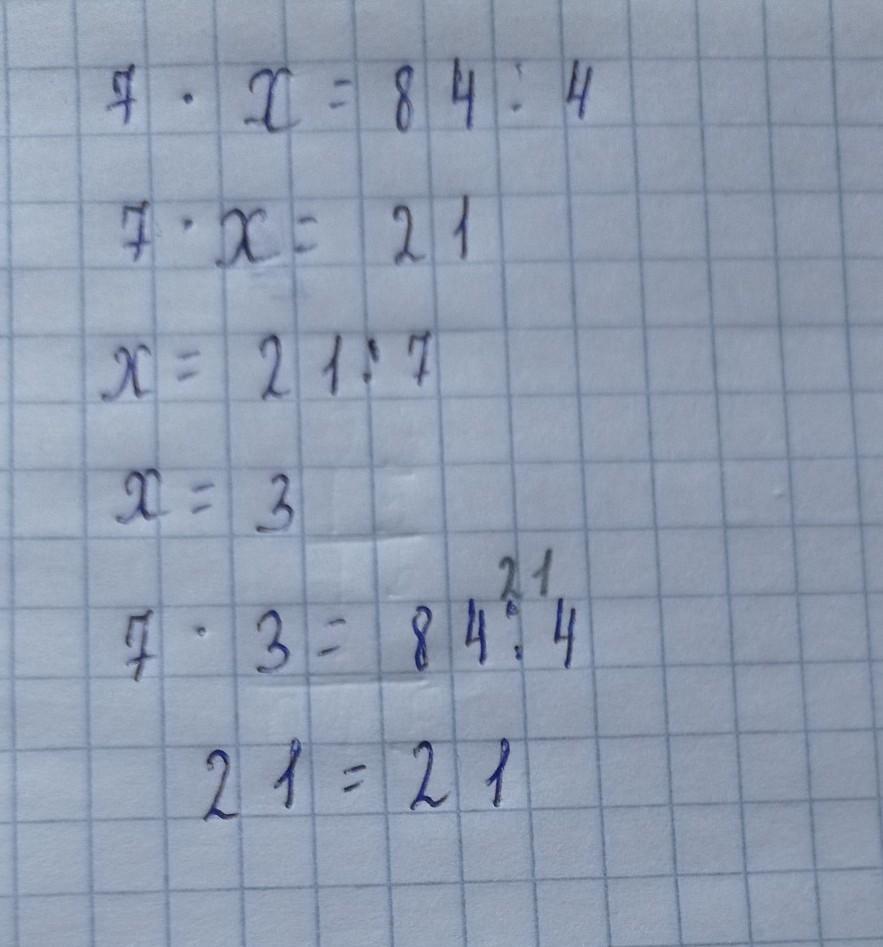 7 · x = 84 : 4
7 · x = 21
x = 21 : 7
x = 3
21
7 · 3 = 84 : 4
21 = 21